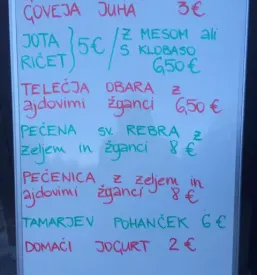 GOVEJA JUHA 3€
JOTA } 5€ / Z MESOM ali
RIČET S KLOBASO
6,50 €
TELEČJA OBARA z
ajdovimi žganci 6,50 €
PEČENA sv. REBRA z
zeljem in žganci 8 €
PEČENICA z zeljem in
ajdovimi žganci 8 €
TAMARJEV POHANČEK 6 €
DOMAČI JOGURT 2 €